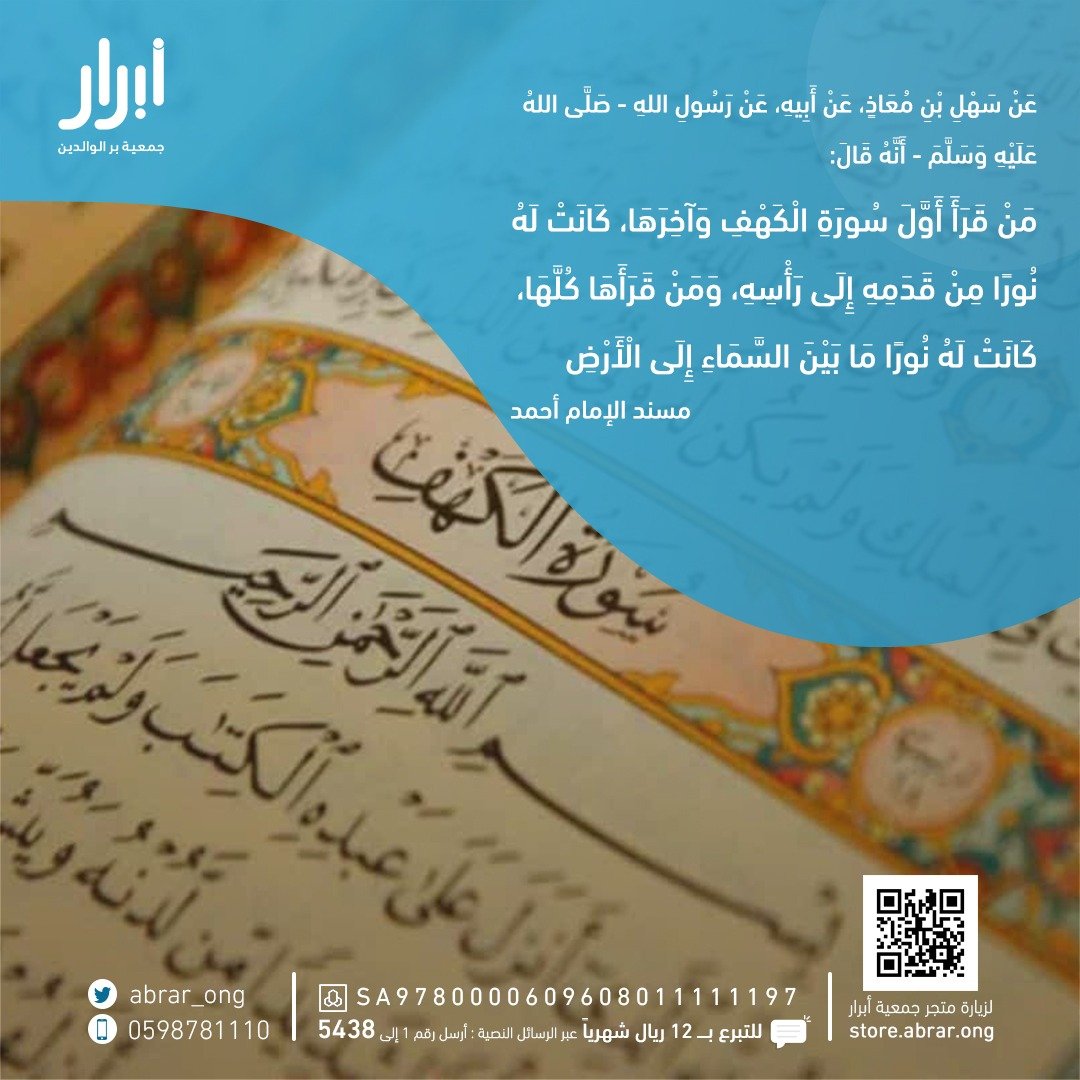 أبرار
جمعية بر الوالدين
عَنْ سَهْلِ بْنِ مُعَاذٍ، عَنْ أَبِيهِ، عَنْ رَسُولِ اللهِ - صَلَّى اللهُ
عَلَيْهِ وَسَلَّمَ - أَنَّهُ قَالَ:
مَنْ قَرَأَ أَوَّلَ سُورَةِ الْكَهْفِ وَآخِرَهَا، كَانَتْ لَهُ
نُورًا مِنْ قَدَمِهِ إِلَى رَأْسِهِ، وَمَنْ قَرَأَهَا كُلَّهَا،
كَانَتْ لَهُ نُورًا مَا بَيْنَ السَّمَاءِ إِلَى الْأَرْضِ
مسند الإمام أحمد
سُورَةُ الْكَهْفِ
بِسْمِ ٱللَّهِ ٱلرَّحْمَٰنِ ٱلرَّحِيمِ
أَنزَلَ عَلَىٰ عَبْدِهِ ٱلْكِتَٰبَ وَلَمْ يَجْعَل
مِّن لَّدُنْهُ
لزيارة متجر جمعية أبرار
store.abrar.ong
SA9780000609608011111197
للتبرع بـــ 12 ريال شهرياً عبر الرسائل النصية : أرسل رقم 1 إلى 5438
abrar_ong
0598781110